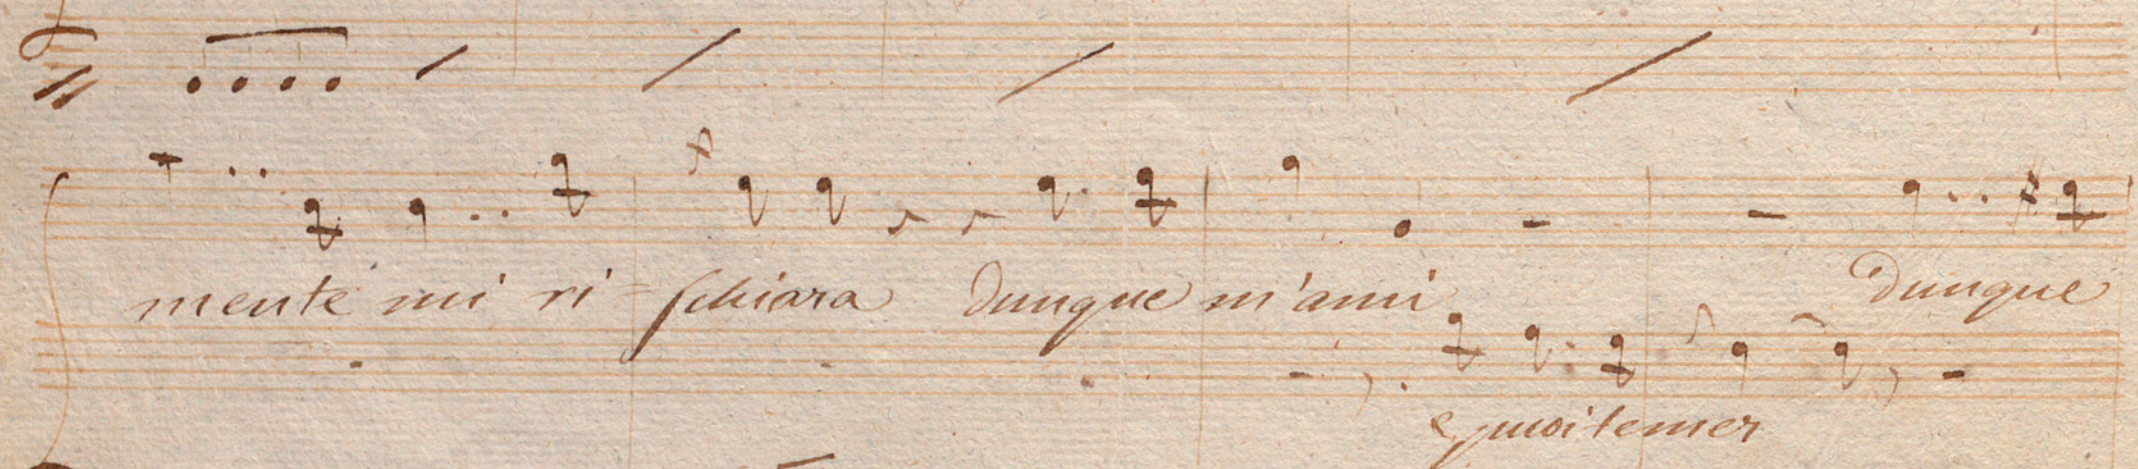 mente mi ri = schiara dunque m'ami dunque
e puoi temer